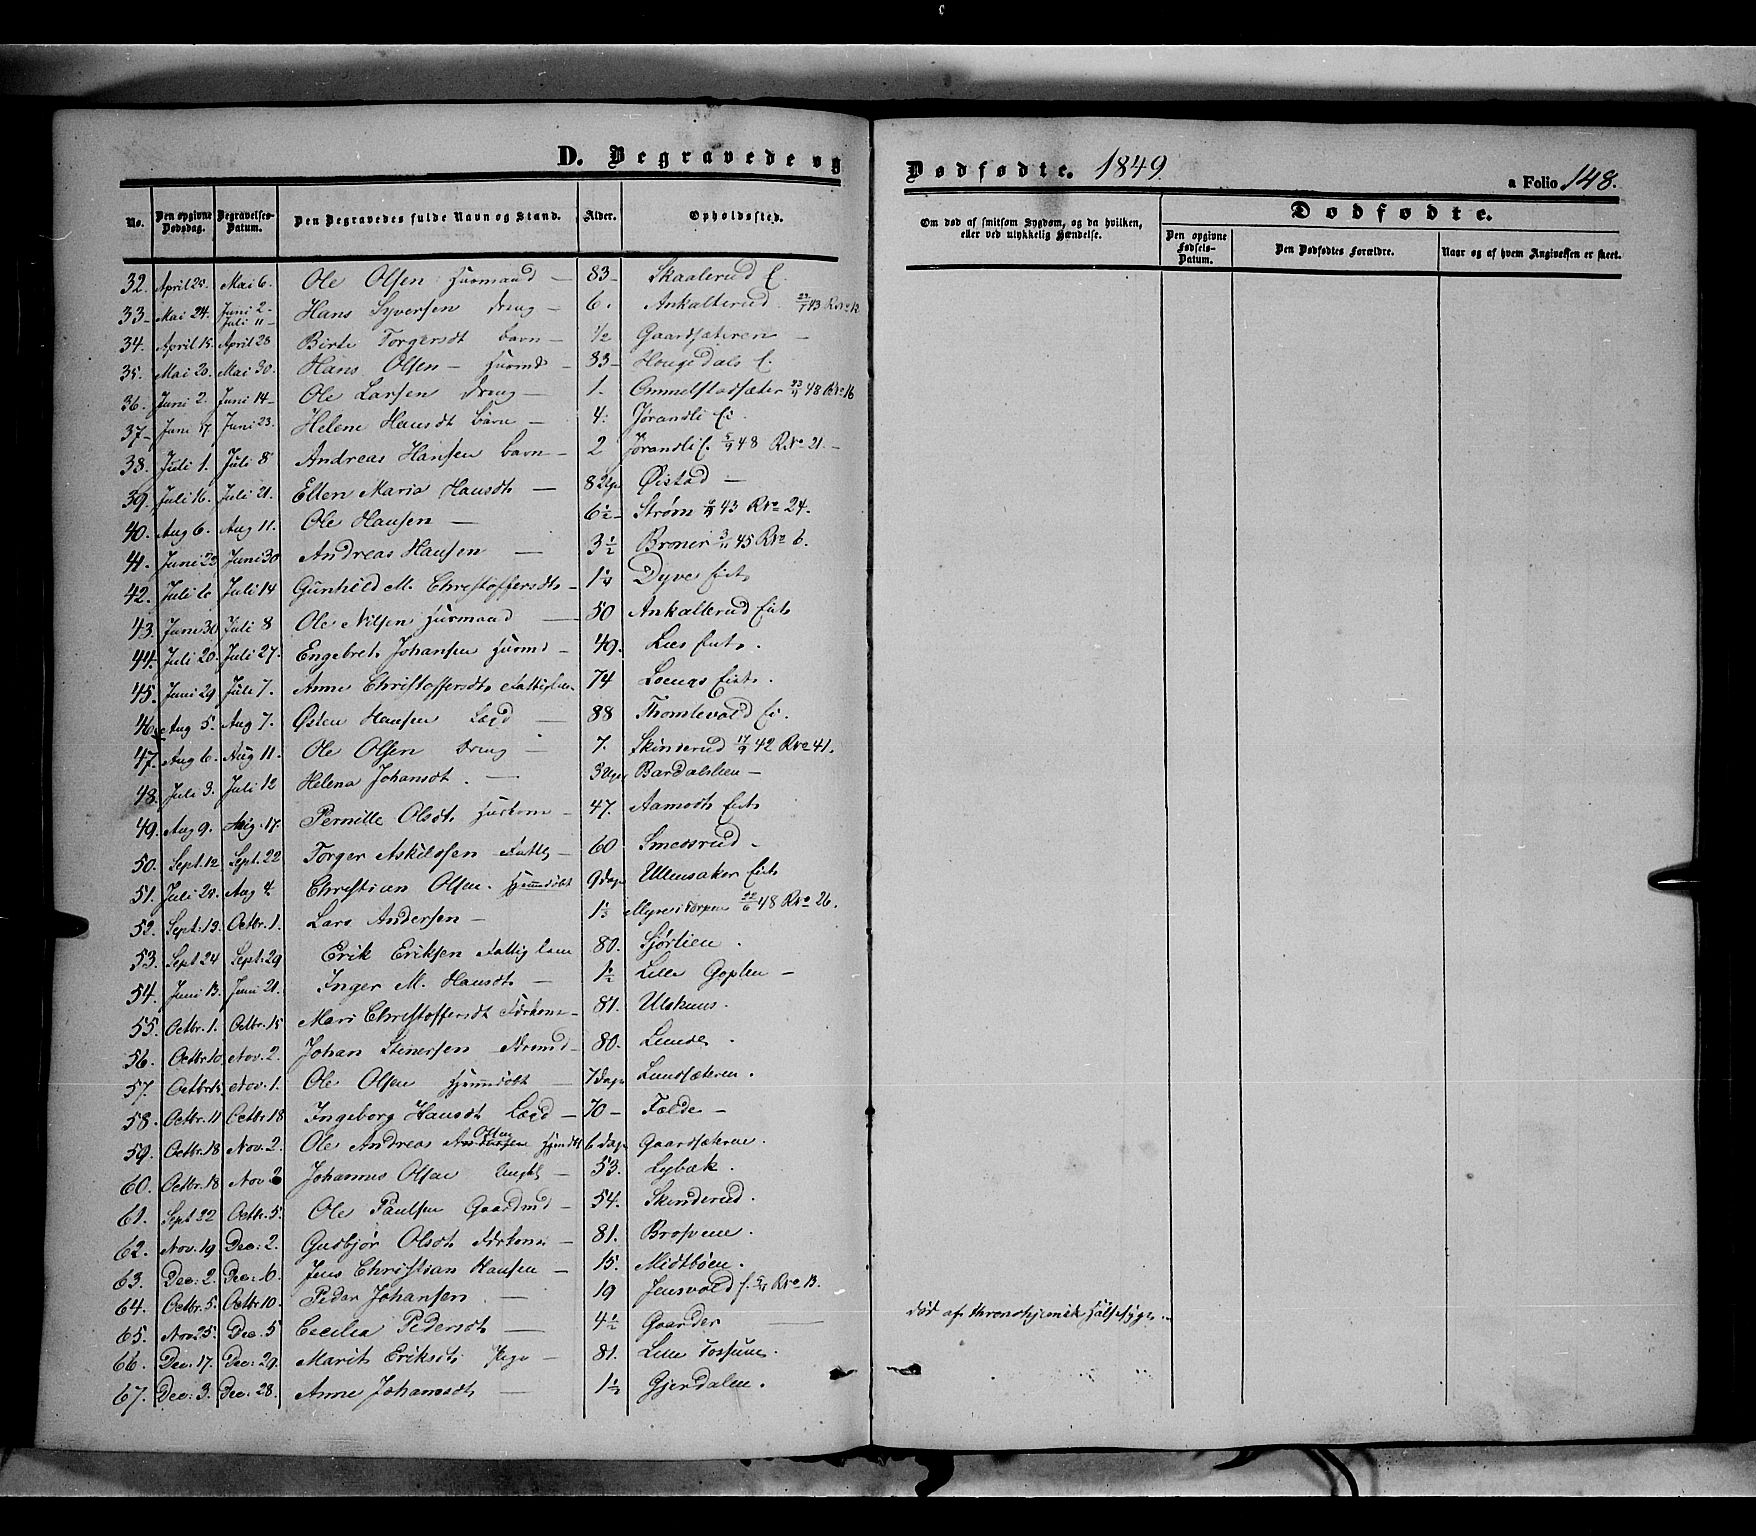 D. Begravede og
Dødfødte. 1849
a Folio 148.
No. Den opgivne Dødsdag. Begravelses-Datum. Den Begravedes fulde Navn og Stand. Alder. Opholdssted.
Om død af smitsom Sygdom, og da hvilken, eller ved ulykkelig Hændelse.
Dødfødte.
Den opgivne Fødsels-Datum. Den Dødfødtes Forældre. Naar og af hvem Angivelsen er skeet.
32. April 25. Mai 6. Ole Olsen Huusmand — 83 Skaalerud E.
33 Mai 24. Juni 2 Juli 11 Hans Syversen Dreng — 6. Ankalterud
34. April 15. April 23 Birte Torgersdt barn — 1/2 Gaardsæteren —
35. Mai 20. Mai 30. Hans Olsen — Huusmd — 83 Hougsdals E.
36. Juni 2. Juni 14 Ole Larsen Dreng — 1.
37 Juni 17 Juni 23. Helene Hansdt barn — 4. Jørandli Ei
38. Juli 1. Juli 8 Andreas Hansen barn — 2 Jørandli E. 48 No 21.
39. Juli 16. Juli 21. Ellen Maria Hansdt — Øistad —
40. Aug 6. Aug 11. Ole Hansen — 6½ Strøm 43 No 24.
41. Juni 23 Juni 30 Andreas Hansen — 3½ 45 No 6.
42. Juli 6 Juli 14 Gunhild M. Christoffersdt — 1¼ Dyves Eiet
43. Juni 30 Juli 8 Ole Nilsen Huusmand — 50 Ankalterud Eiet
44. Juli 20. Juli 27. Engebret Johansen Huusmd — 49. Lies Eiet.
45. Juni 29 Juli 7. Anne Christoffersdt 74 Loengs Eiet.
46 Aug 5. Aug 7. Østen Hansen Lægd — 88 Thomlevold Ei.
47. Aug 6. Aug 11. Ole Olsen Dreng — 7. Skinderud 17/9 42 No 41.
48. Juli 3. Juli 12 Helena Johansdt. — Bardalslien —
49. Aug 9. Aug. 17. Pernille Olsdt Huuskone — 47. Aamodts Eiet
50. Sept. 12 Sept. 22 Torger Askildsen Fattig — 60 Smedsrud
51. Juli 28. Aug 4. Christian Olsen. Hjemmdøbt 9 dage Ullensaker Eiet
52. Sept. 13. Octbr. 1. Lars Andersen — 1⅓ 48 No 26.
53. Sept 24 Sept. 29 Erik Eriksen Fattig Lem 80. Fjørlien.
54. Juni 13. Juni 21. Inger M. Hansdt — 1½ Lille Goplen —
55. Octbr. 1. Octbr. 15 Mari Christoffersdt 81. Ulshuus.
56. Octbr 10 Nov. 2. Johan Steinersen — 80. Lunde.
57. Octbr 15 Nov. 1. Ole Olsen Hjemmdøbt — 7 dage Lundsæteren.
58. Octbr. 11 Octbr 18 Ingeborg Hansdt Lægd — 70 — Fælde —
59. Octbr. 18 Nov. 2. Ole Andreas Andersen Olsen Hjmdbt 6 dage Gaardsæterne.
60. Octbr. 18 Nov 2 Johannes Olsen Ungkl — 53. Lybæk.
61. Sept 22 Octbr. 5. Ole Paulsen Gaardmd — 54. Skinderud.
62. Nov. 19 Dec: 2. Gudbjør Olsdt — 81. Brosvene.
63. Dec: 2. Dec: 6. Jens Christian Hansen — 15. Midtbøen.
64. Octbr. 5. Octbr 10. Peder Johansen. — 19 Jensvold
65. Nov 25. Dec. 5 Cecilia Pedersdt — 4½ Gaarder —
død af Halsesyge.
66. Dec. 17. Dec: 29. Marit Eriksdt Pige — 81. Lille Fossum.
67. Dec: 3. Dec: 28. Anne Johansdt — 1½ Gjerdalen.